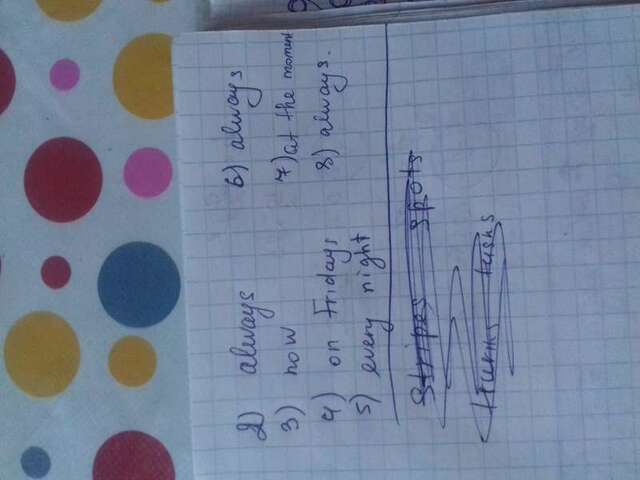 2) always
3) now
4) on Fridays
5) every night
6) always
7) at the moment
8) always.
stripes spots
tusks